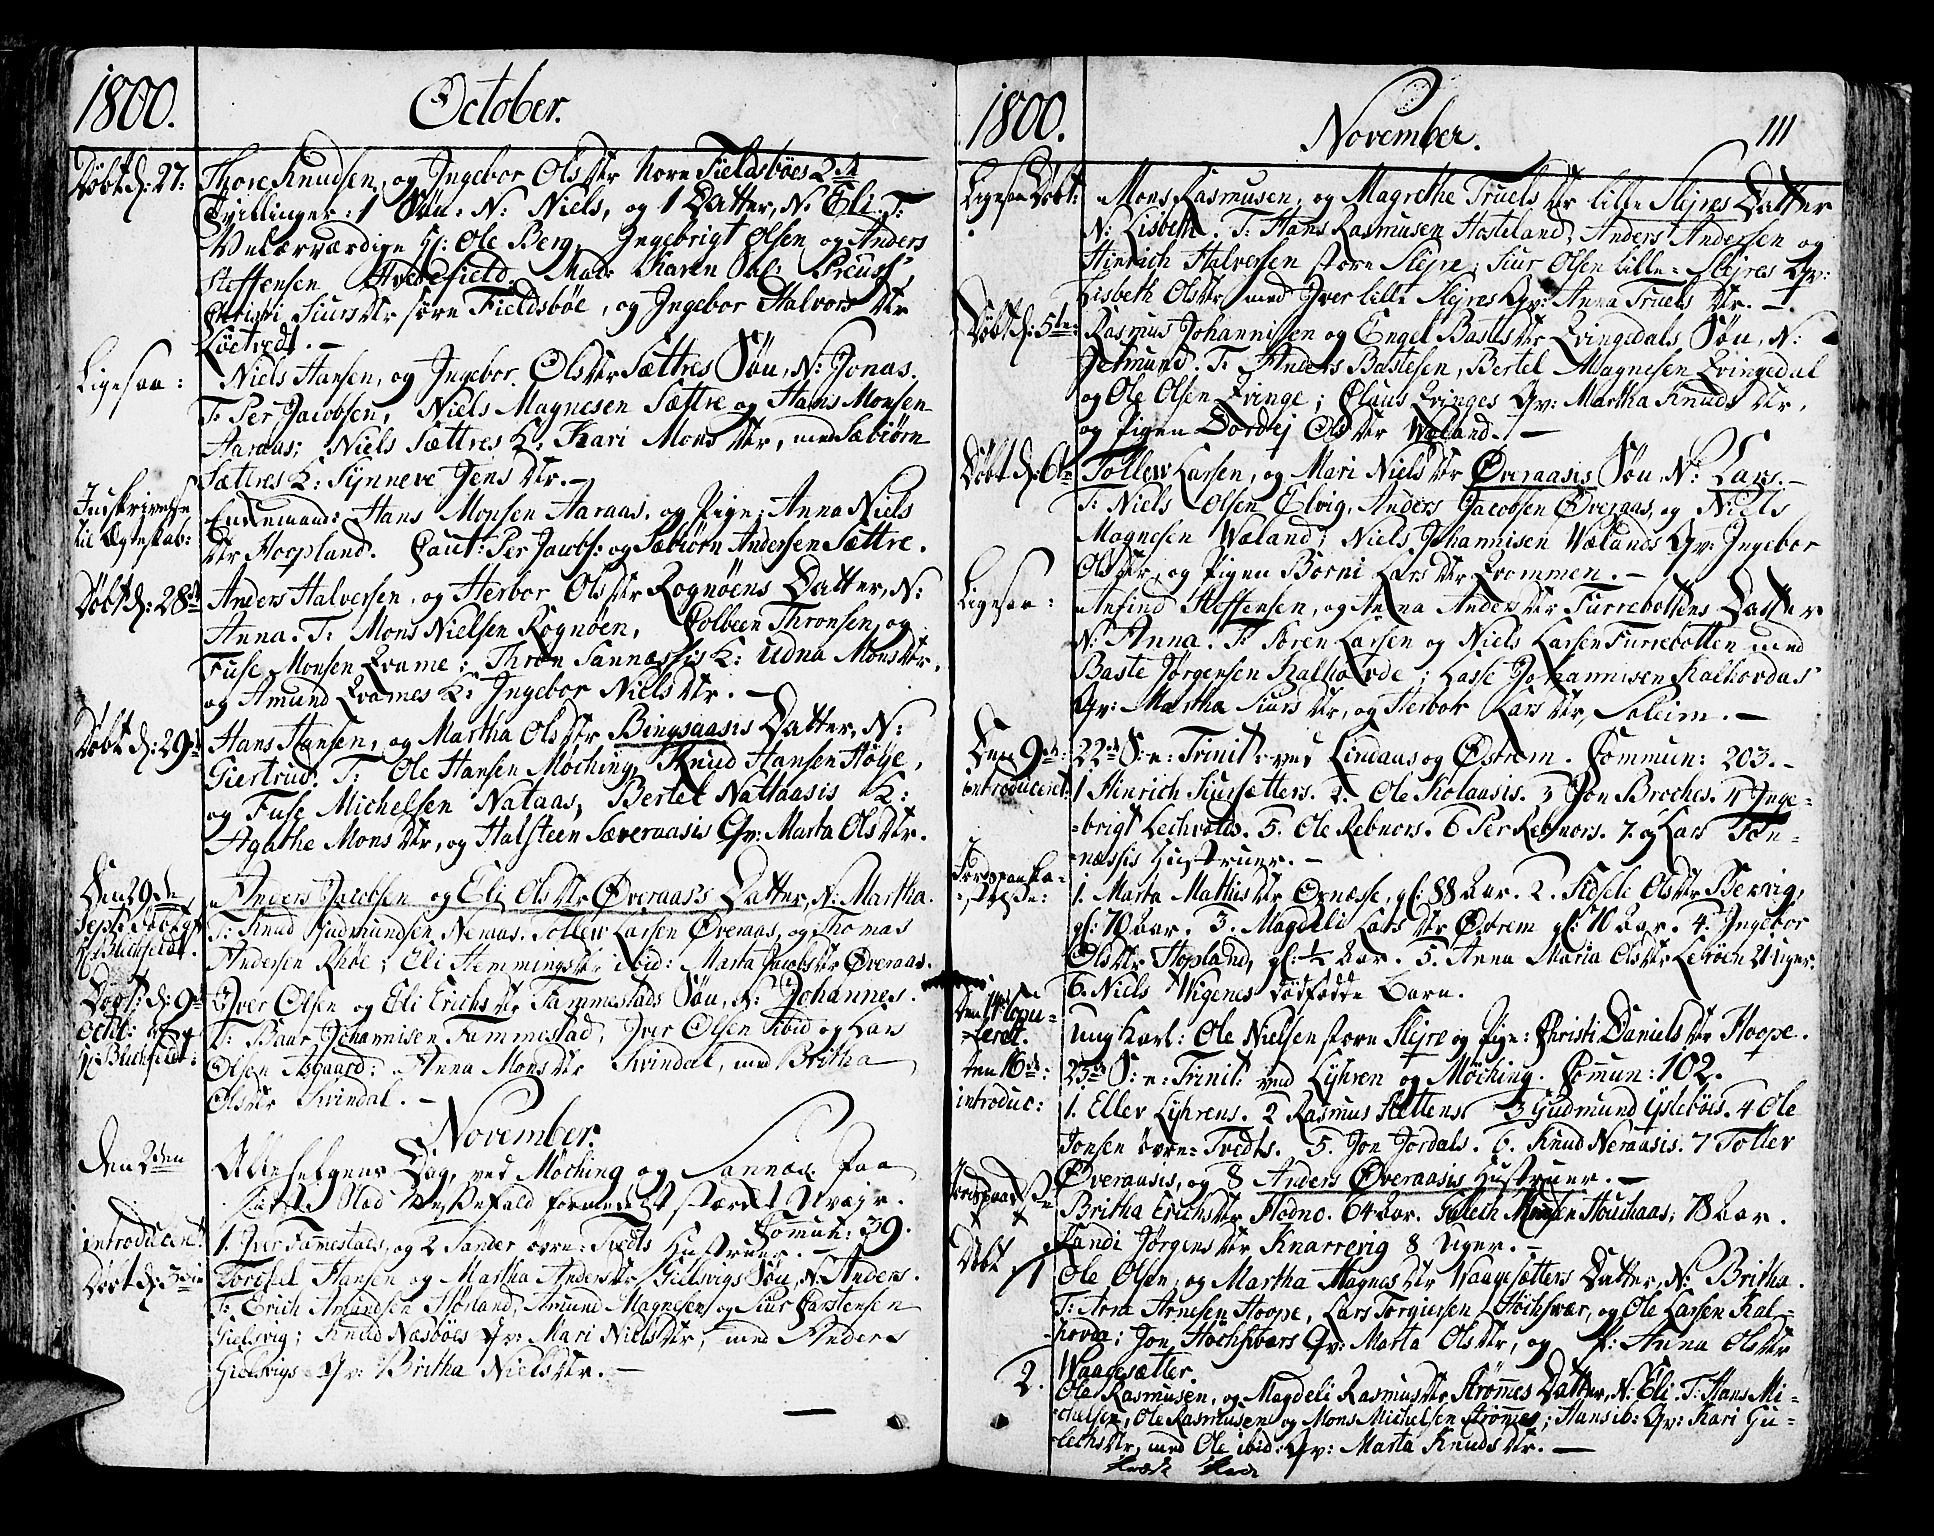 1800. October.
Døbt d: 27: Thore Knudsen, og Ingebor Olsdtr Nore Fieldsbøes 2de
Tvillinger: 1 Søn: N: Niels, og 1 Datter, N: Eli. T:
Velærværdige Hr: Ole Berg, Ingebrigt Olsen og Anders
Steffensen Mad: Karen Sal: Preuss,
Siursdtr søre Fieldsbøe, og Ingebor Halvorsdtr
Løetvedt. —
Ligesaa: Niels Hansen, og Ingebor Olsdtr Sættres Søn, N: Jonas.
T: Per Jacobsen, Niels Magnesen Sættre og Hans Monsen
Aaraas; Niels Sættres K: Kari Monsdtr, med Sæbiørn
Sættres K: Synneve Jensdtr. —
Indskrivelse Enkemand: Hans Monsen Aaraas, og Pige: Anna Niels
til Ægteskab: dtr Hoopland. Caut: Per Jacobs: og Sæbiørn Andersen Sættre.
Døbt d: 28de Anders Halversen, og Herbor Olsdtr Rognøens Datter, N:
Anna. T: Mons Nielsen Rognøen, Colbeen Thronsen, og
Fuse Monsen Qvame; Thron Sannæssis K: Udna Monsdtr,
og Amund Qvames K: Ingebor Nielsdtr. —
Døbt d: 29de Hans Hansen, og Martha Olsdtr Bingsaasis Datter, N:
Giertrud. T: Ole Hansen Møching, Knud Hansen Hølje,
og Fuse Michelsen Nataas, Bertel Nattaasis K:
Agathe Monsdtr, og Halsteen Sæveraasis Qv: Marta Olsdtr.
Den 29de Anders Jacobsen og Eli Olsdtr Øveraas's Datter, N: Martha.
Sept: døbt af T: Knud Gudmundsen Neraas, Tollew Larsen Øveraas, og Thomas
Hr Buchfeldt. Andersen Rhøe; Eli Hemmingsdtr ibid: Marta Jacobsdtr Øveraas.
Døbt d: 9de Iver Olsen og Eli Erichsdtr Fammestads Søn, N: Johannes.
Octbr: af T: Baar Johannisen Fammestad, Iver Olsen ibid og Lars
Hr Buchfeldt: Olsen Asgaard: Anna Monsdtr Kvindal, med Britha
Olsdtr Kvindal. —
November.
Den 2den Allehelgens Dag, ved Møching og Sannæs. Paa
Sted Messefald formedelst stærkt Uvejr.
Comun: 39.
introducert 1. Iver Fammestads, og 2 Sander øvre= Tvedts Hustruer. —
Døbt d: 3die Torsel Hansen og Martha Andersdtr Gielsvigs Søn, N: Anders.
T: Erich Amundsen Hopland, Amund Magnesen og Siur Carstensen
Gielsvig; Knud Næsbøes Qv: Mari Nielsdtr, med Anders
Gielsvigs Qv: Britha Nielsdtr. —
1800. November. 111
Ligesaa Døbt: Mons Rasmusen, og Magrethe Truelsdtr lille Slejres Datter
N: Lisbeth. T: Hans Rasmusen Hosteland, Anders Andersen og
Hinrich Halversen store Slejre; Siur Olsen lille= Slejres Qv:
Lisbeth Olsdtr med Iver lille Slejres Qv: Anna Truelsdtr. —
Døbt d: 5te: Rasmus Johannissen og Engel Bastesdtr Qvingedals Søn, N:
Jetmund. T: Anders Bastesen, Bertel Magnesen Qvingedal
og Ole Olsen Qvinge; Claus Qvinges Qv: Martha Knudsdtr,
og Pigen Dordej Olsdtr Wæland. —
Døbt d: 6te Tollew Larsen, og Mari Nielsdtr Øveraasis Søn, N: Lars. —
T: Niels Olsen Elvig, Anders Jacobsen Øveraas, og Niels
Magnesen Wæland; Niels Johannisen Wælands Qv: Ingebor
Olsdtr, og Pigen Borni Larsdtr Qvammen. —
Ligesaa: Anfind Steffensen, og Anna Andersdtr Furrebottens Datter
N: Anna. T: Søren Larsen og Niels Larsen Furrebotten med
Baste Jørgensen Kalhovde; Lasse Johannisen Kalhovdas
Qv: Martha Siursdtr, og Herbor Larsdtr, Soleim. —
Den 9de: 22de S: e: Trinit: ved Lindaas og Østrem. Commun: 203. —
introduceret: 1 Hinrich Siursætters. 2. Ole Kolaasis. 3 Jon Broches. 4 Inge=
=brigt Lechvolds. 5. Ole Rebnors. 6 Per Rebnors. 7. og Lars Tøn=
=næssis Hustruer. —
Jordspaaka=
=stelse: 1. Marta Mathisdtr Ornæse, gl: 88 Aar. 2. Sidsele Olsdtr Bervig,
gl: 70 Aar. 3. Magdeli Larsdtr Østrem gl: 10 Aar. 4. Ingebor
Olsdtr Hopland, gl: ½ Aar. 5. Anna Maria Olsdtr Lerøen 2 Uger.
6. Niels Wigenes dødfødde Barn.
Den 14 Copu=
=leret. Ung Karl: Ole Nielsen store Slejre og Pige: Christi Danielsdtr Hoope.
Den 16de: 23de S: e: Trinit: ved Lyhren og Møching. Comun: 102.
introduc: 1. Eller Lyhrens. 2 Rasmus Slettens. 3 Gudmund Yslebøis. 4 Ole
Jonsen øvre= Tvedts. 5. Jon Jordals. 6. Knud Neraasis. 7 Toller
Øveraasis, og 8 Anders Øveraasis Hustruer. —
Britha Erichsdtr Hodne. 64 Aar. Gulech Monsen Houchaas, 78 Aar.
Randi Jørgensdtr Knarrevig 8 Uger. —
Døbt 1 Ole Olsen, og Martha Magnesdtr Waagesætters Datter, N: Britha.
T: Arne Arnesen Hoope, Lars Torgiersen Høchsvær, og Ole Larsen Kal=
=hovde; Jon Høchsværs Qv: Marta Olsdtr, og P: Anna Olsdtr
Waagesætter.
2. Ole Rasmusen, og Magdeli Rasmusdtr Strømes Datter, N: Eli. T: Hans Mi=
=chelsen, Ole Rasmusen og Mons Michelsen Strømes; Hans ib: Qv: Kari Gu=
=lechsdtr, med Ole ibid: Qv: Marta Knudsdtr. —